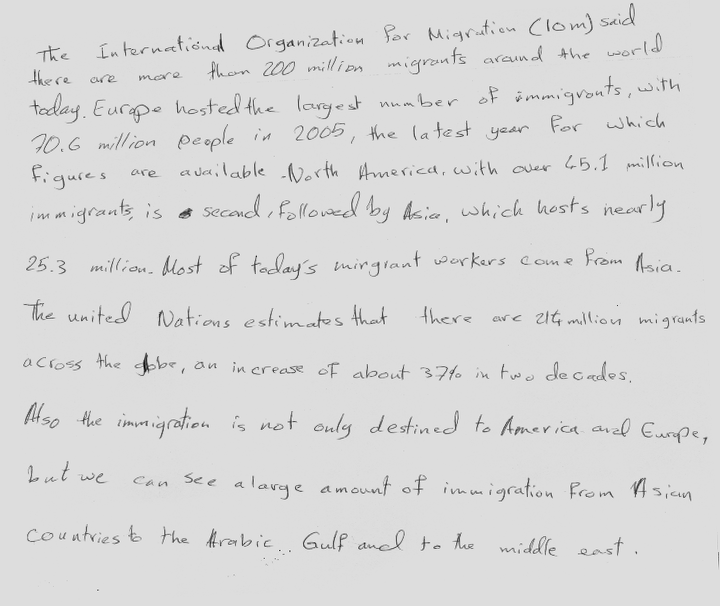 The International Organization for Migration (IOM) said
there are more than 200 million migrants around the world
today. Europe hosted the largest number of immigrants, with
70.6 million people in 2005, the latest year for which
figures are available. North America, with over 45.1 million
immigrants, is second, followed by Asia, which hosts nearly
25.3 million. Most of today's mirgrant workers come from Asia.
The united Nations estimates that there are 214 million migrants
across the globe, an increase of about 37% in two decades.
Also the immigration is not only destined to America and Europe,
but we can see a large amount of immigration from Asian
countries to the Arabic.. Gulf and to the middle east.